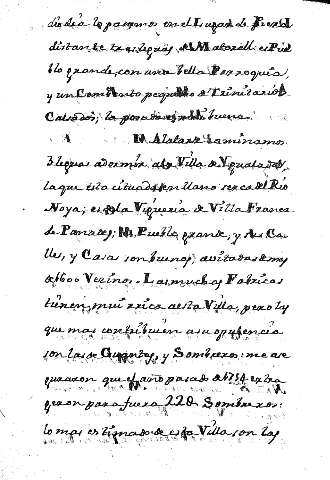 dio dia lo pasamos en el Lugar de Piera
distante tres leguas de Matorell es Pue
blo grande, con una bella Parroquia,
y un Combento pequeño de Trinitarios
Calzados; la posada es mui buena.
A Alatarde caminamos
llegar adormir ala Villa de Ygualada,
la que esta cituada en llano serca del Rio
Noya; es de la Vigueria de Villa Franca
de Panades; Pueblo grande, y sus Ca
lles, y Casas son buenas, avitadas de mas
de 600 Vezinos. Las muchas Fabricas
tienen mui rrica aesta Villa, pero las
que mas contribuien a su opulencia
son las de Guantes, y Sombreros: me ase
guraron que el año pasado de 1754 extra
geron para fuera 220 Sombreros:
lo mas estimado de esta Villa son las